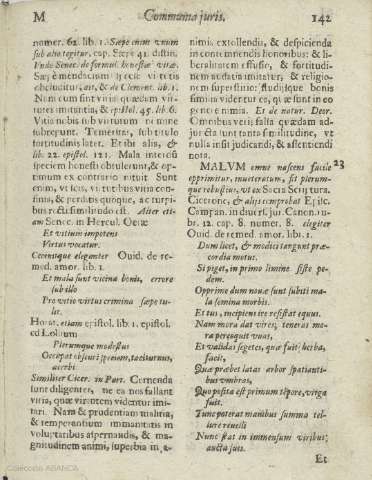 M Communia juris. 142
numer. 62. lib. 1. Sæpe enim vnum
sub alio tegitur. cap. Sæpe 41. distin.
Vnde Senec. de formul. honestæ vitæ.
Sæpè mendacium specie veritatis
ait, & de Clement. lib. 1.
Nam cum sint vitia quædam vir-
tutes imitantia, & epistol. 45. lib. 6.
Vitia nobis sub virtutum nomine
obrepunt. Temeritas, sub titulo
fortitudinis latet. Et ibi alia, &
lib. 22. epistol. 121. Mala interdũ
speciem honesti obtulerunt, & op-
timum ex contrario nituit. Sunt
enim, vt scis, virtutibus vitia con-
finia, & perditis quoque, ac turpi-
bus recti similitudo est. Aliter eti-
am Senec. in Hercul. Oetæ
Et vitium impotens
Virtus vocatur.
Cecinitque eleganter Ouid. de re-
med. amor. lib. 1.
Et mala sunt vicina bonis, errore
sub illo
Pro vitio virtus crimina sæpe tu-
lit.
Horat. etiam epistol. lib. 1. epistol.
ad Lollium
Plerumque modestus
Occupat obscuri speciem, taciturnus,
acerbi
Similiter Cicer. in Part. Cernenda
sunt diligenter, ne ea nos fallant
vitia, quæ virtutem videntur imi-
tari. Nam & prudentiam malitia,
& temperantium immanitas in
voluptatibus aspernandis, & ma-
gnitudinem animi, superbia in a-
nimis extollendis, & despicienda
in contemnendis honoribus: & li-
beralitatem effusio, & fortitudi-
nem audatia imitatur, & religio-
nem superstitio: studijsque bonis
similia videntur ea, quæ sunt in eo
genere nimia. Et de natur. Deor.
Omnibus veris falsa quædam ad-
juncta sunt tanta similitudine, vt
nulla insit judicandi, & assentiendi
nota.
MALVM omne nascens facile 23
opprimitur, inueteratum, fit plerum-
que robustius, vt ex Sacra Scriptura.
Cicerone, & alijs comprobat Episc.
Campan. in diuers. jur. Canon. ru-
br. 12. cap. 8. numer. 8. eleg̃ter
Ouid. de remed. amor. lib. 1.
Dum licet, & modici tangunt præ-
cordia motus.
Si piget, in primo limine siste pe-
dem.
Opprime dum noua sunt subiti ma-
la semina morbi.
Et tus, incipiens ire resistat equus.
Nam mora dat vires, teneras mo-
ra percoquit vuas,
Et validas segetes, quæ fuit herba,
facit,
Quæ præbet latas arbor spatianti-
bus vmbras,
Quo posita est primum tẽpore, virga
fuit:
Tunc poterat manibus summa tel-
lure reuelli
Nunc stat in immensum viribus,
aucta suis.
Et
Colección ABANCA